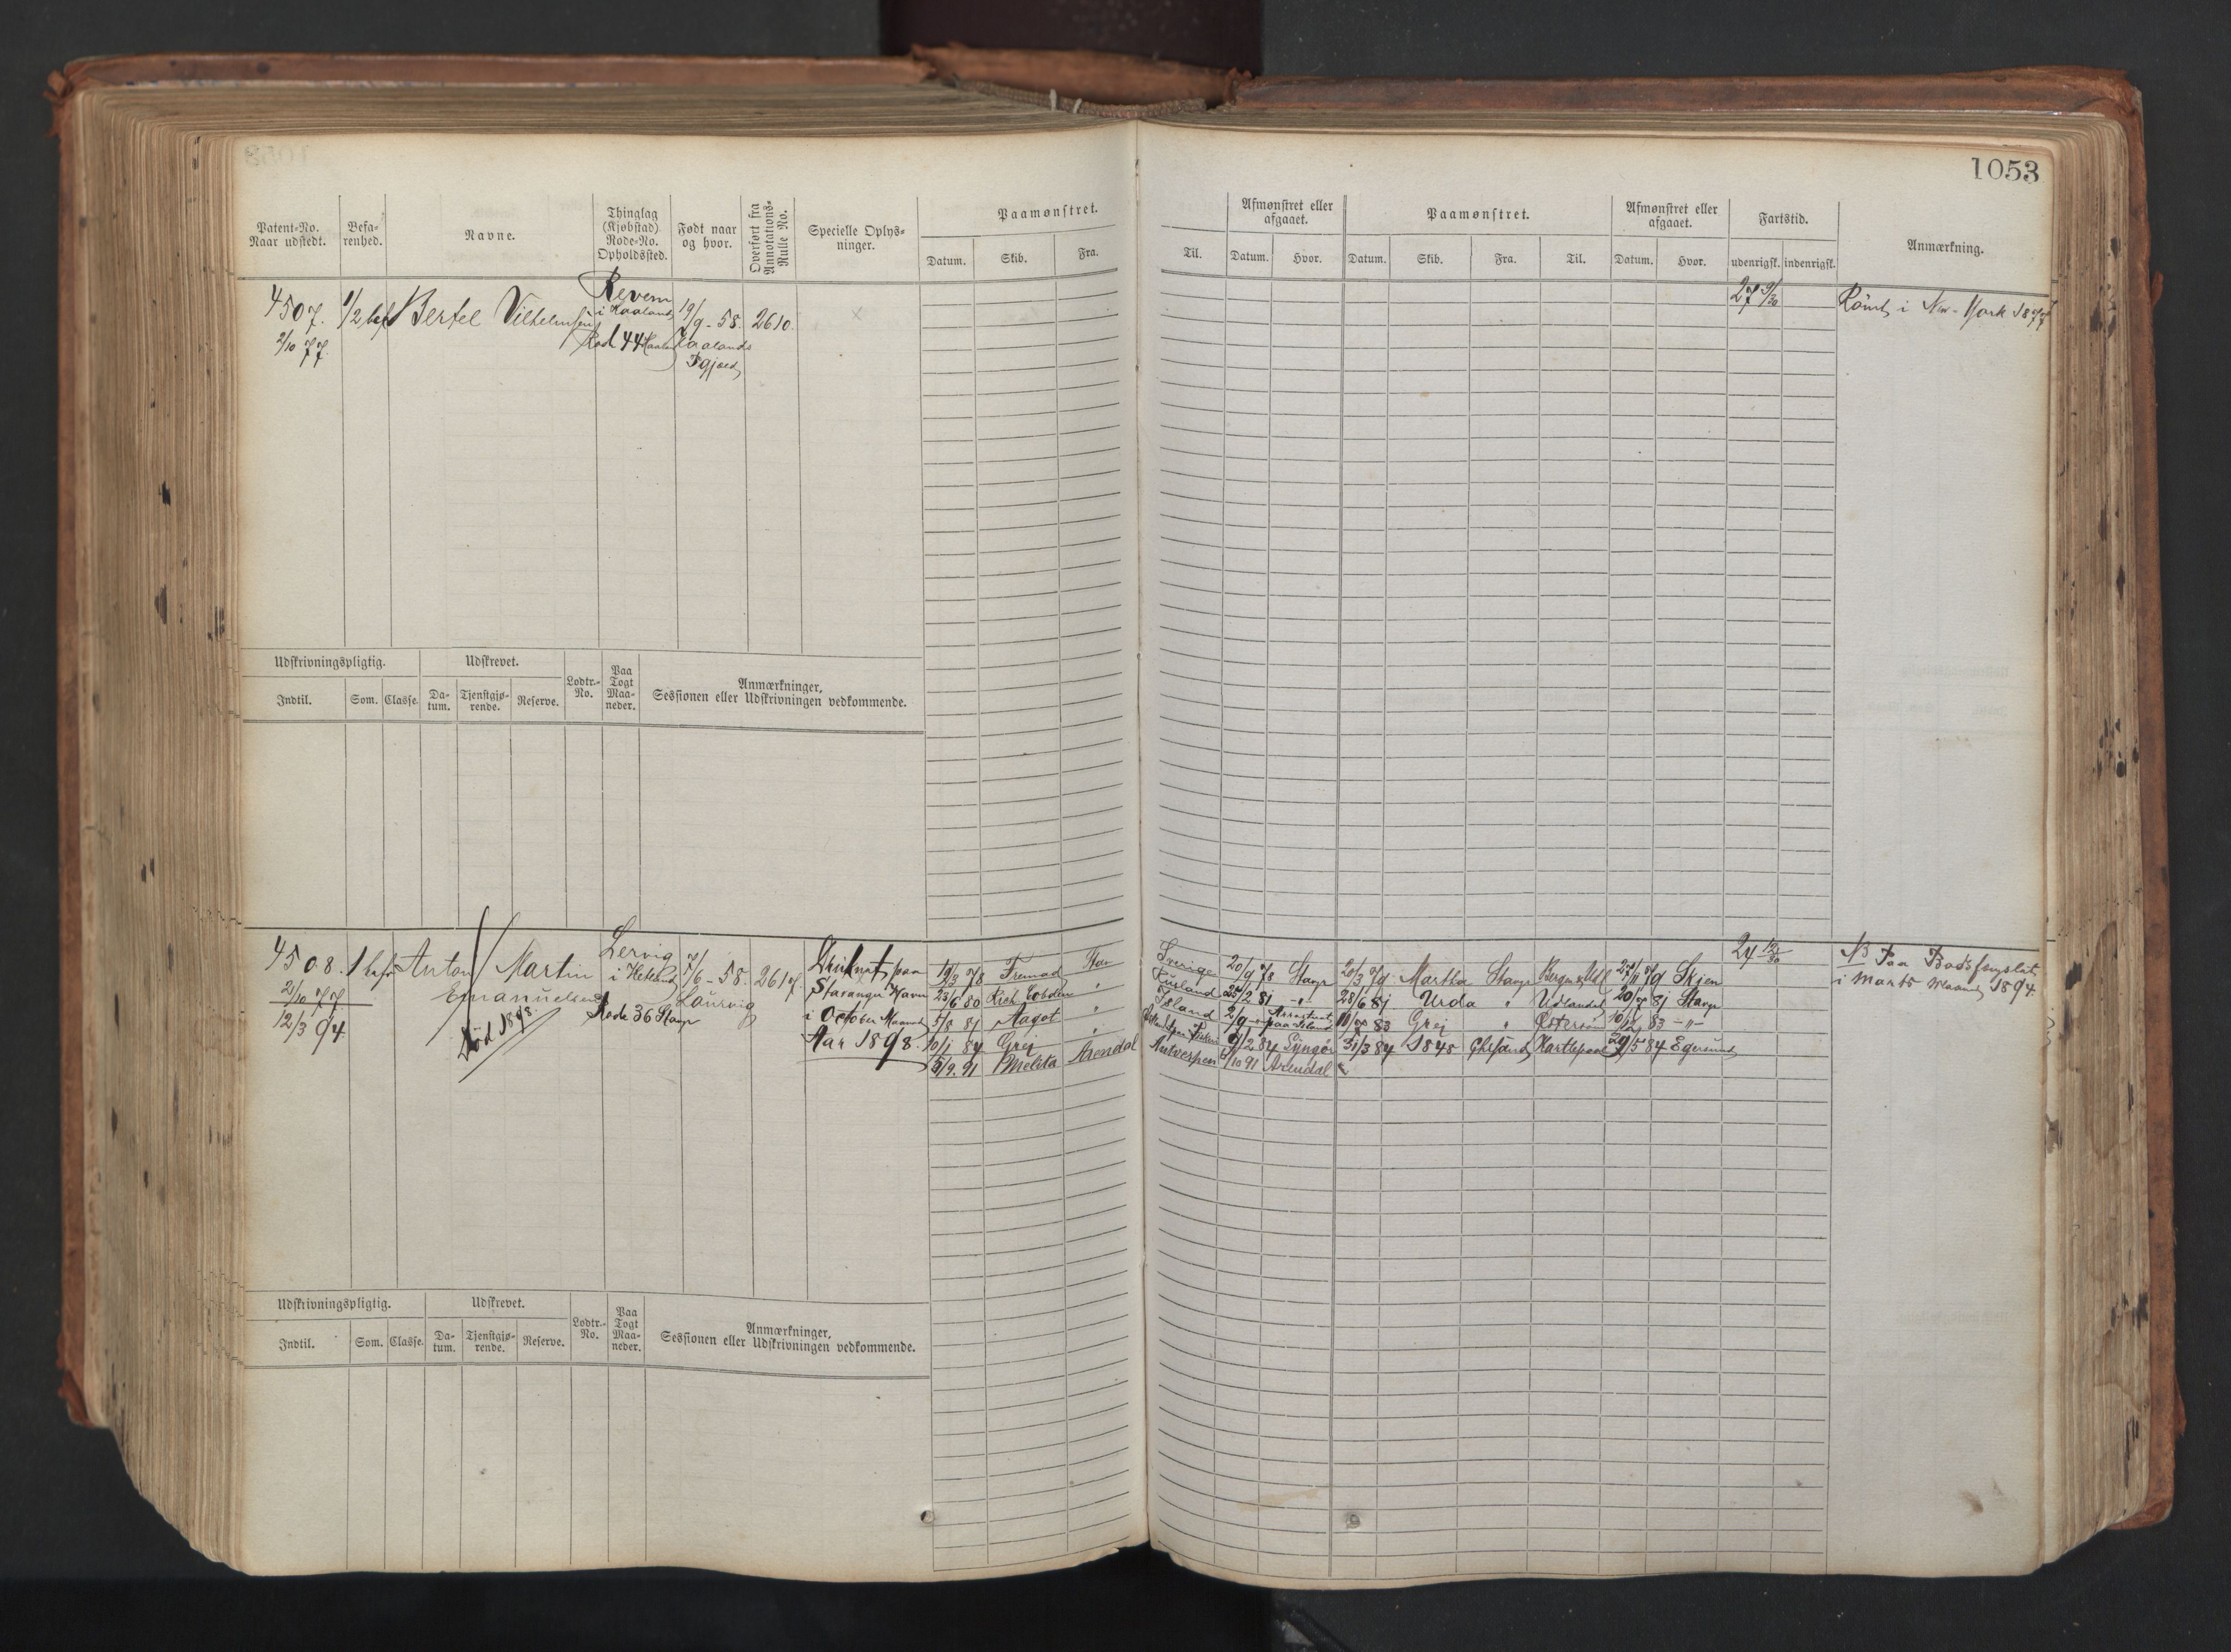 1053
Patent-No. Naar udstedt.
Befa-renhed.
Navne.
Thinglag (Kjøbstad) Rode-No. Opholdssted.
Født naar og hvor.
Overført fra Annotations-Rulle No.
Specielle Oplys-ninger.
Paamønstret.
Datum. Skib. Fra. Til.
Afmønstret eller afgaaet.
Datum. Hvor.
Paamønstret.
Datum. Skib. Fra. Til.
Afmønstret eller afgaaet.
Datum. Hvor.
Fartstid.
udenrigsk. indenrigsk.
Anmærkning.
4507. 1/2 bef Bertel Vilhelmsen
2/10 77.
Revem
i Haaland
Rod 44 Haaland
19/9-58. 2610.
Haalands
Pgjæld
x
27 9/30
Rømt i New-York 1877
Udskrivningspligtig. Udskrevet. Lodtr.-No. Paa Togt Maa-neder. Anmærkninger,
Indtil. Som. Classe. Da-tum. Tjenstgjø-rende. Reserve. Sessionen eller Udskrivningen vedkommende.
4508. 1 bef Anton Martin
Emanuelsen
2/10 77.
12/3 94.
Død 1898.
Lervig
i Hetland
Rode 36 Stavgr
7/6-58. 2617.
Laurvig
Druknet paa
Stavanger Havn
i October Maaned
Aar 1898.
19/3 78 Fremad Stav Sverige 20/9 78 Stavgr 20/3 79 Martha Stavgr Bergen 27/11 79 Skien
23/6 80 Rich. Cobden " Rusland 25/2 81 -"- 28/6 81 Urda " Udlandet 20/7 81 Stavgr
5/8 81 Magot " Island 2/9 Arresteret paa Island 11/8 83 Grej " Østersøen 10/12 83 -"-
10/1 84 Grej " 9/2 84 Lyngør 31/3 84 1848 Chrsand Hartlepool 29/5 84 Egersund
5/9. 91 Melita Arendal Antverpen 5/10 91 Arendal
24 12/30
NB Paa Bodsfengslet
i Marts Maaned 1894.
Udskrivningspligtig. Udskrevet. Lodtr.-No. Paa Togt Maa-neder. Anmærkninger,
Indtil. Som. Classe. Da-tum. Tjenstgjø-rende. Reserve. Sessionen eller Udskrivningen vedkommende.